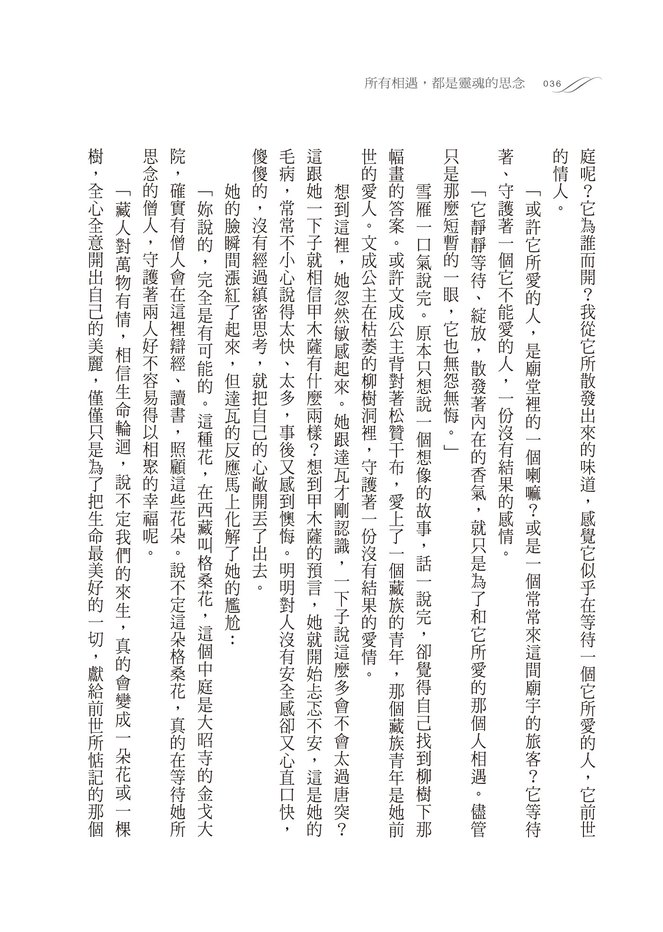 所有相遇，都是靈魂的思念 036
庭呢？它為誰而開？我從它所散發出來的味道，感覺它似乎在等待一個它所愛的人，它前世
的情人。
「或許它所愛的人，是廟堂裡的一個喇嘛？或是一個常常來這間廟宇的旅客？它等待
著、守護著一個它不能愛的人，一份沒有結果的感情。
「它靜靜等待、綻放，散發著內在的香氣，就只是為了和它所愛的那個人相遇。儘管
只是那麼短暫的一眼，它也無怨無悔。」
雪雁一口氣說完。原本只想說一個想像的故事，話一說完，卻覺得自己找到柳樹下那
幅畫的答案。或許文成公主背對著松贊干布，愛上了一個藏族的青年，那個藏族青年是她前
世的愛人。文成公主在枯萎的柳樹洞裡，守護著一份沒有結果的愛情。
想到這裡，她忽然敏感起來。她跟達瓦才剛認識，一下子說這麼多會不會太過唐突？
這跟她一下子就相信甲木薩有什麼兩樣？想到甲木薩的預言，她就開始忐忑不安，這是她的
毛病，常常不小心說得太快、太多，事後又感到懊悔。明明對人沒有安全感卻又心直口快，
傻傻的，沒有經過縝密思考，就把自己的心敞開丟了出去。
她的臉瞬間漲紅了起來，但達瓦的反應馬上化解了她的尷尬：
「妳說的，完全是有可能的。這種花，在西藏叫格桑花，這個中庭是大昭寺的金戈大
院，確實有僧人會在這裡辯經、讀書，照顧這些花朵。說不定這朵格桑花，真的在等待她所
思念的僧人，守護著兩人好不容易得以相聚的幸福呢。
「藏人對萬物有情，相信生命輪迴，說不定我們的來生，真的會變成一朵花或一棵
樹，全心全意開出自己的美麗，僅僅只是為了把生命最美好的一切，獻給前世所惦記的那個